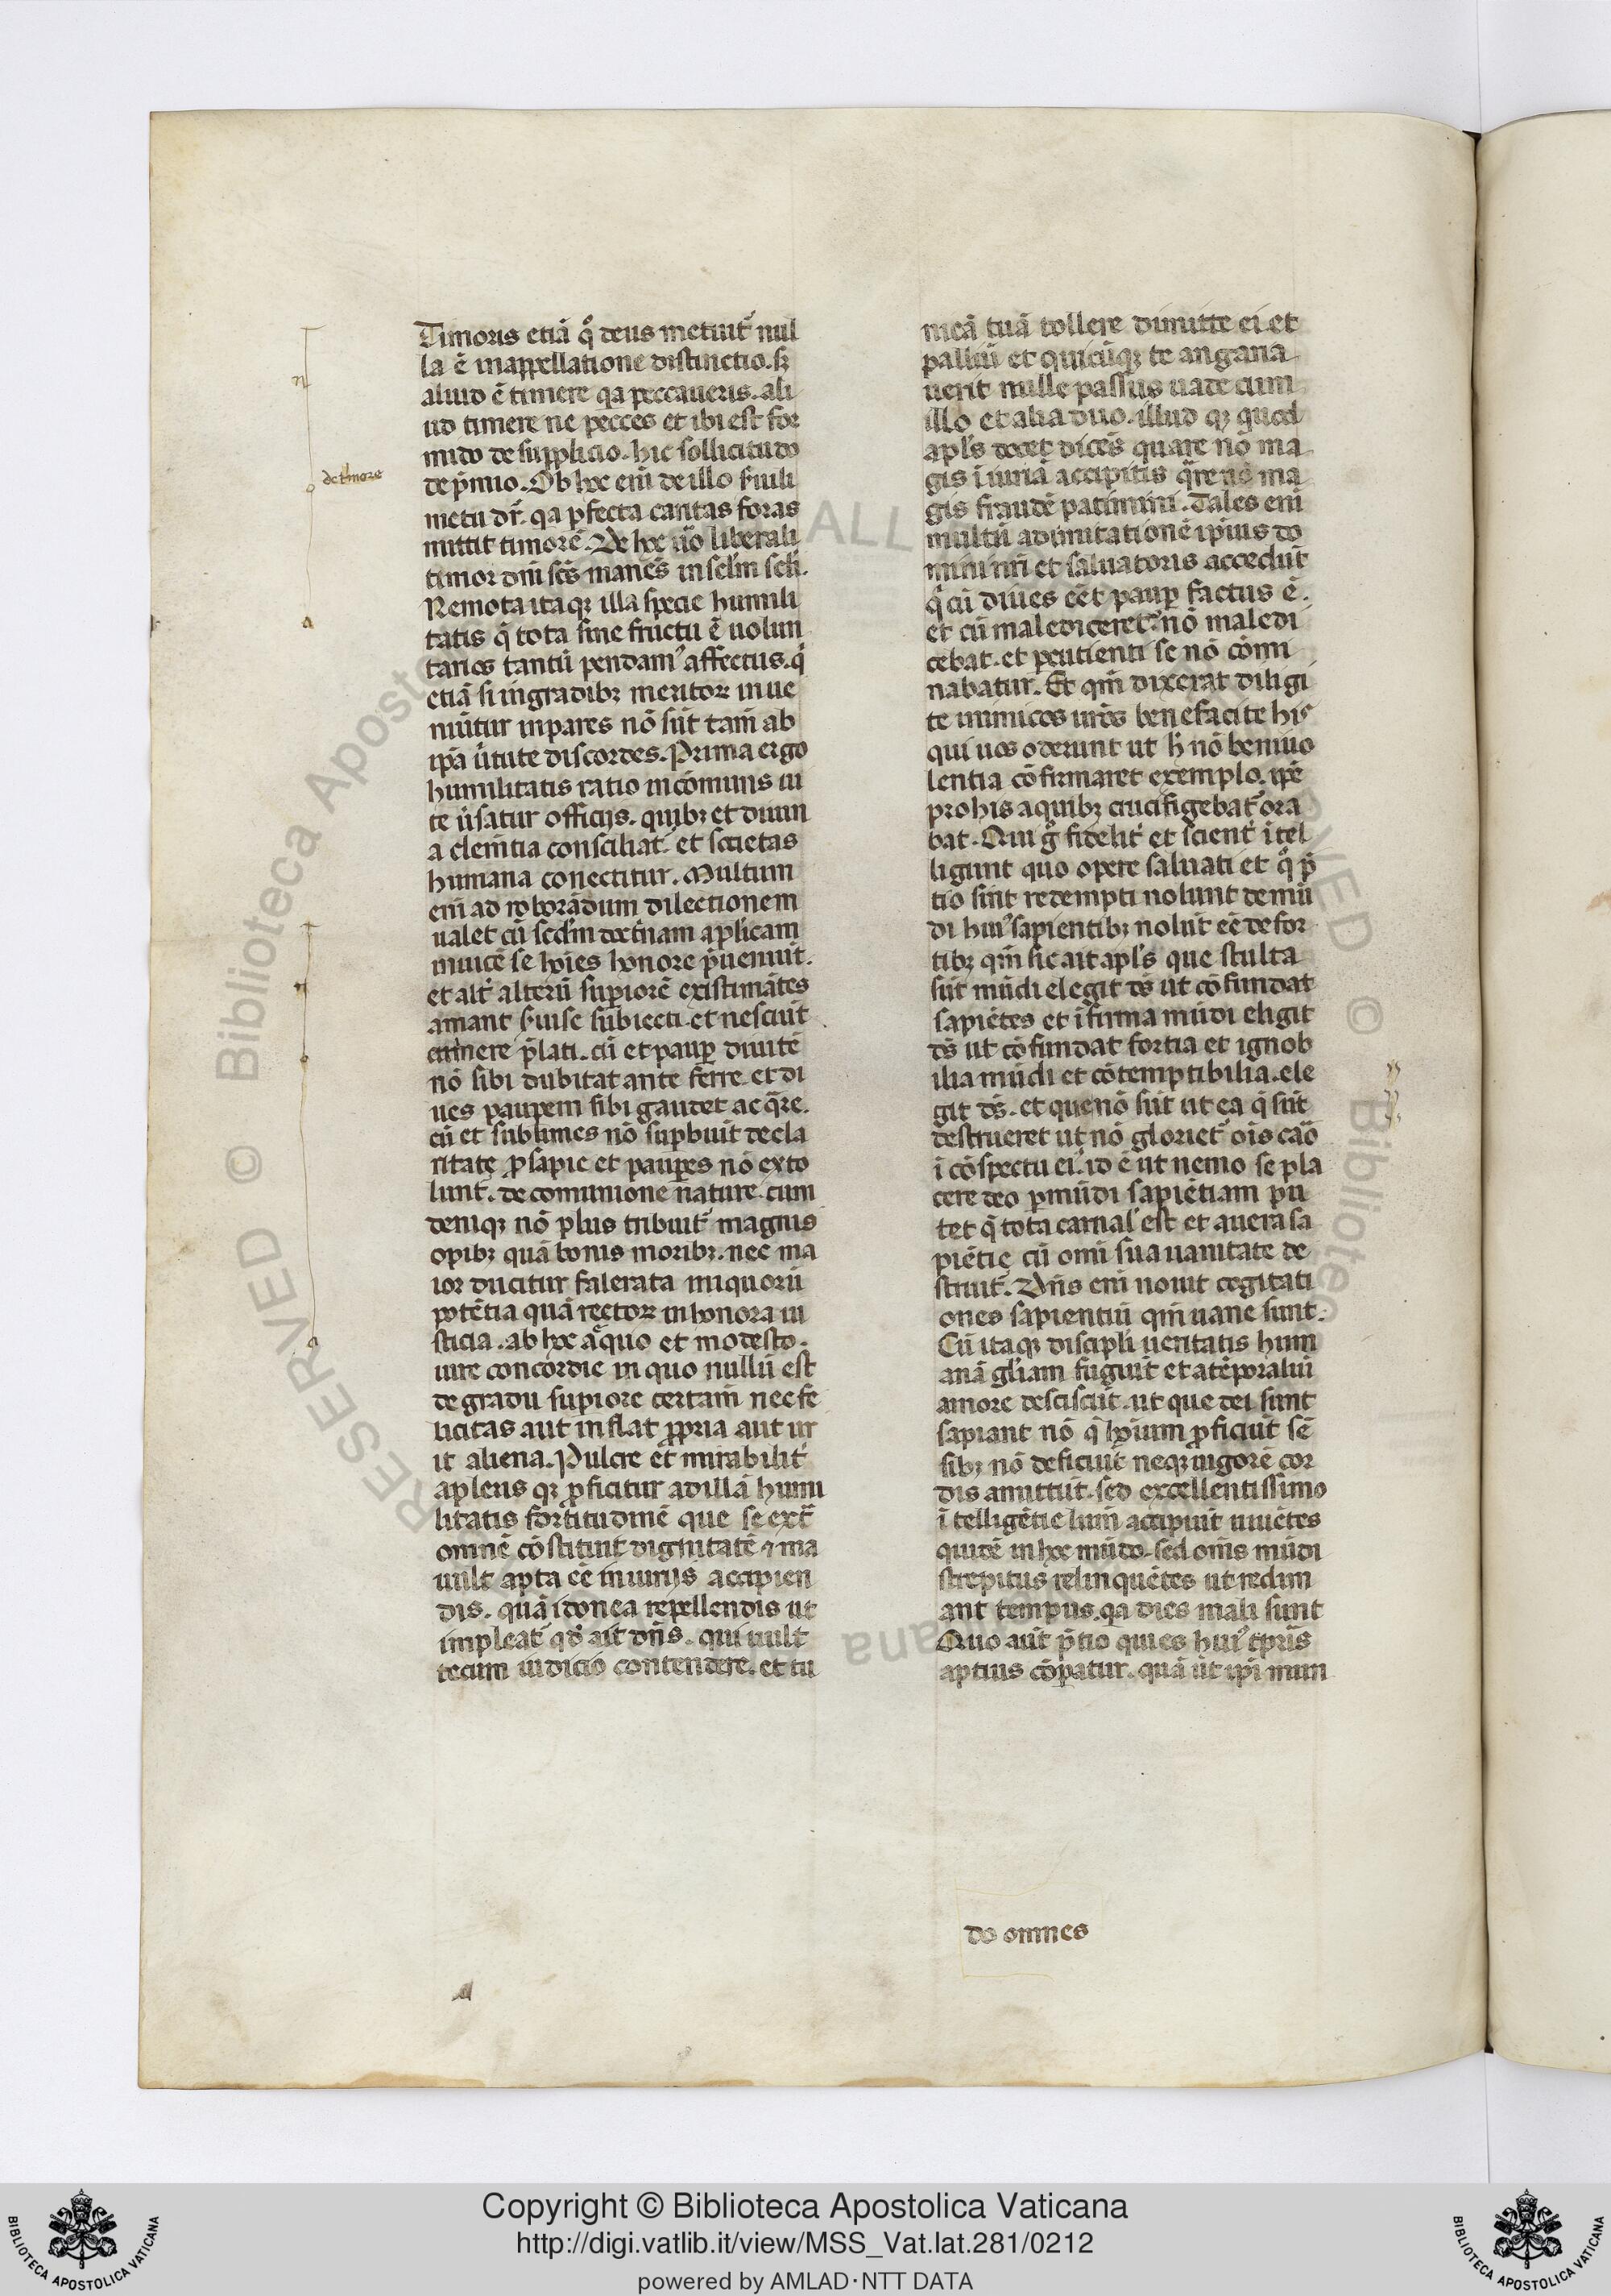 Timoris etiā qͦ deus metuit᷑ nul
la ē inappellatione distinctio. sꝫ
aliud ē timere qa peccaueris. ali
ud timere ne pecces et ibi est for
mido de supplicio. hic sollicitudo
de p̄mio. Ob hoc eni᷑ de illo s᷑uili
metu dr̄. qa ꝑfecta caritas foras
mittit timorē. De hoc uͦo liberali
timor dn̄i sc̄s manēs in sc̄l'm sc̄li.
Remota itaqꝫ illa specie humili
tatis q̄ tota sine fructu ē uolun
tarios tantū pendamꝰ affectus. q̇
etiā si ingradibꝫ meritoꝝ inue
niūtur inpares nō sūt tam̄ ab
ip̄a u᷑tute discordes. Prima ergo
humilitatis ratio incōmunis ui
te u᷑satur officijs. quibꝫ et diuin
a clemētia consciliat᷑ et societas
humana conectitur. Multum
eni᷑ ad roborādum dilectionem
ualet cū scd'm doct᷑nam apl'icam
inuicē se hoi᷑es honore p̄ueniūt.
et alt᷑ alterū supiorē existimātes
amant s᷑uise subiecti et nesciūt
tumere p̄lati. cū et paup diuitē
nō sibi dubitat ante ferre. et di
ues paupem sibi gaudet aeq̄re.
cū et sublimes nō suꝑbiūt de cla
ritate ꝓsapie et pauꝑes nō exto
lunt᷑. de comunione nature. cum
deniqꝫ nō plus tribuit᷑ magnis
opibꝫ quā bonis moribꝫ. nec ma
ior ducitur falerata iniquorū
potētia quā rectoꝝ inhonora iu
sticia. ab hoc a᷑quo et modesto.
iure concordie in quo nullū est
de gradu suꝑiore certam̄ nec fe
licitas aut inflat ꝓpria aut ur
it aliena. Pulcre et mirabilit᷑
aplens qꝫ ꝓficitur ad illā humi
litatis fortitudinē que se ext᷑
omnē cōstituit dignitatē ⁊ ma
uult apta eē iniurijs accipien
dis. quā idonea repellendis ut
impleat qď ait dn̄s. qui uult
tecum iudicio contendere. et tu
de timore
meā tuā tollere dimitte ei et
palliū et quicūqꝫ te angaria
uerit mille passus uade cum
illo et alia duo. illud qꝫ quod
apl's docet dicēs quare nō ma
gis iiuriā accipitis q̄re nō ma
gis fraudē patimini. Tales eni᷑
multū ad imitationē ip̄ius do
mini nr̄i et saluatoris accedūt
q̇ cū diues eēt paup factus ē.
et cū malediceret᷑ nō maledi
cebat. et ꝑcutienti se nō cōmi
nabatur. Et qm̄ dixerat diligi
te inimicos ur̄os benefacite his
qui uos oderunt ut h̄ nō beniuo
lentia cōfirmaret exemplo. ip̄e
pro his aquibꝫ crucifigebat᷑ ora
bat. Qui g̊ fidelit᷑ et scient᷑ itel
ligunt quo opere saluati et qͦ p̄
tio sint redempti nolunt de mū
di huiꝰ sapientibꝫ nolūt eē de for
tibꝫ qm̄ sic ait apl's que stulta
sūt mūdi elegit d̄s ut cōfundat
sapiētes et ifirma mūdi eligit
d̄s ut cōfundat fortia et ignob
ilia mūdi et cōtemptibilia. ele
git d̄s. et que nō sūt ut ea q̄ sūt
destrueret ut nō gloriet᷑ ōis caro
i cōspectu eiꝰ. id ē ut nemo se pla
cere deo ꝑ mūdi sapiētiam pu
tet q̄ tota carnal' est et auera sa
piētie cū omi sua uanitate de
struit᷑. Dn̄s eni᷑ nouit cogitati
ones sapientiū qm̄ uane sunt.
Cū itaqꝫ discipli ueritatis hum
anā gl'iam fugiūt et atēporaliū
amore desciscūt. ut que dei sunt
sapiant nō q̄ hoi᷑um ꝓficiūt sē
sibꝫ nō deficiūt neqꝫ uigorē cor
dis amittūt. sed excellentissimo
i telligētie lum̄ accipiūt uiuētes
quidē in hoc mūdo. sed om̄s mūdi
strepitus relinquētes ut redim
ant tempus. qa dies mali sunt
Quo aut̄ p̄tio quies huiꝰ tpr̄is
aptius cōꝑatur. quā ut ip̄i mun
do omnes
Copyright © Biblioteca Apostolica Vaticana
http://digi.vatlib.it/view/MSS_Vat.lat.281/0212
powered by AMLAD·NTT DATA
BIBLIOTECA APOSTOLICA VATICANA
BIBLIOTECA APOSTOLICA VATICANA